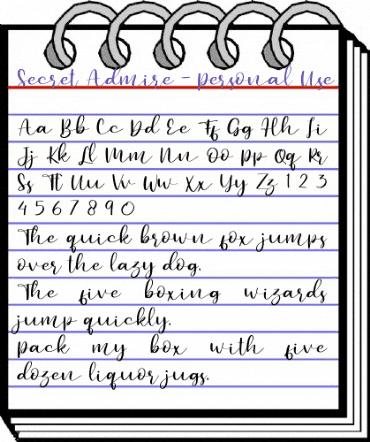 Secret Admire - Personal Use
Aa Bb Cc Dd Ee Ff Gg Hh Ii
Jj Kk Ll Mm Nn Oo Pp Qq Rr
Ss Tt Uu Vv Ww Xx Yy Zz 1 2 3
4 5 6 7 8 9 0
The quick brown fox jumps
over the lazy dog.
The five boxing wizards
jump quickly.
Pack my box with five
dozen liquor jugs.